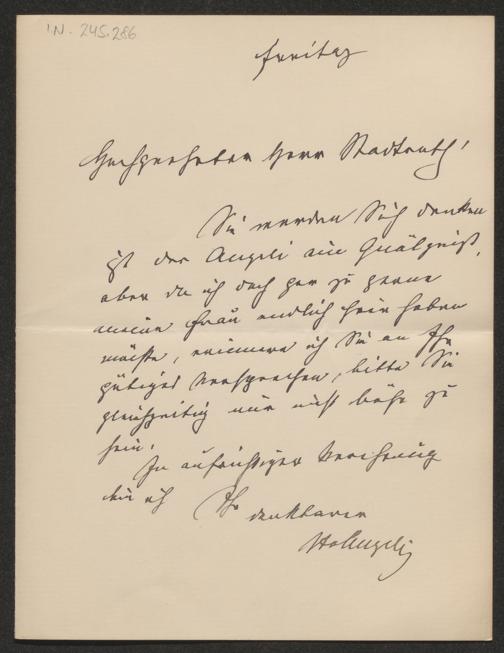 I.N. 245.286
Freitag
Hochverehrter Herr Stadtrath!
Sie werden Sich denken
ist der Angeli ein Quälgeist,
aber da ich doch gar zu gerne
meine Frau endlich hier haben
möchte, erinnere ich Sie an Ihr
gütiges Versprechen, bitte Sie
gleichzeitig mir nicht böse zu
sein.
In aufrichtiger Verehrung
bin ich Ihr dankbarer
HvAngeli